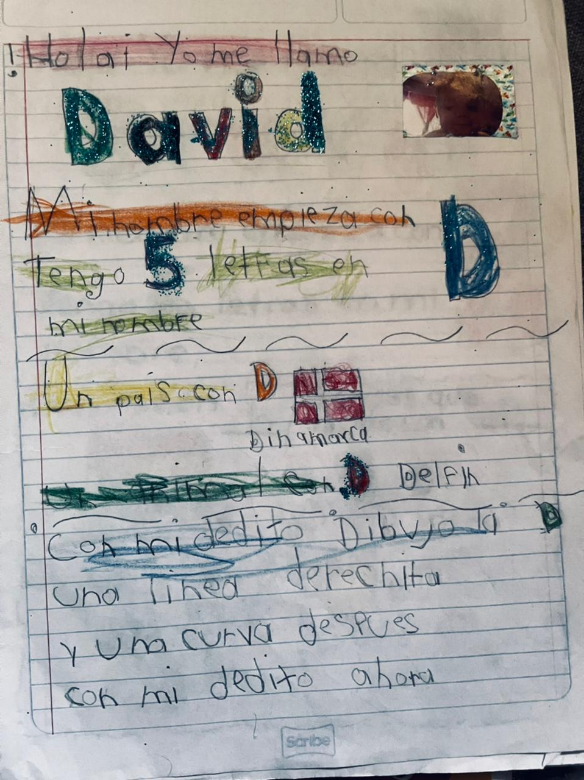 ¡Hola! Yo me llamo
David
Mi nombre empieza con D
Tengo 5 letras en
mi nombre
Un país con D
Dinamarca
Un animal con D Delfin
Con mi dedito Dibujo la D
una linea derechita
y una curva despues
con mi dedito ahora
Scribe